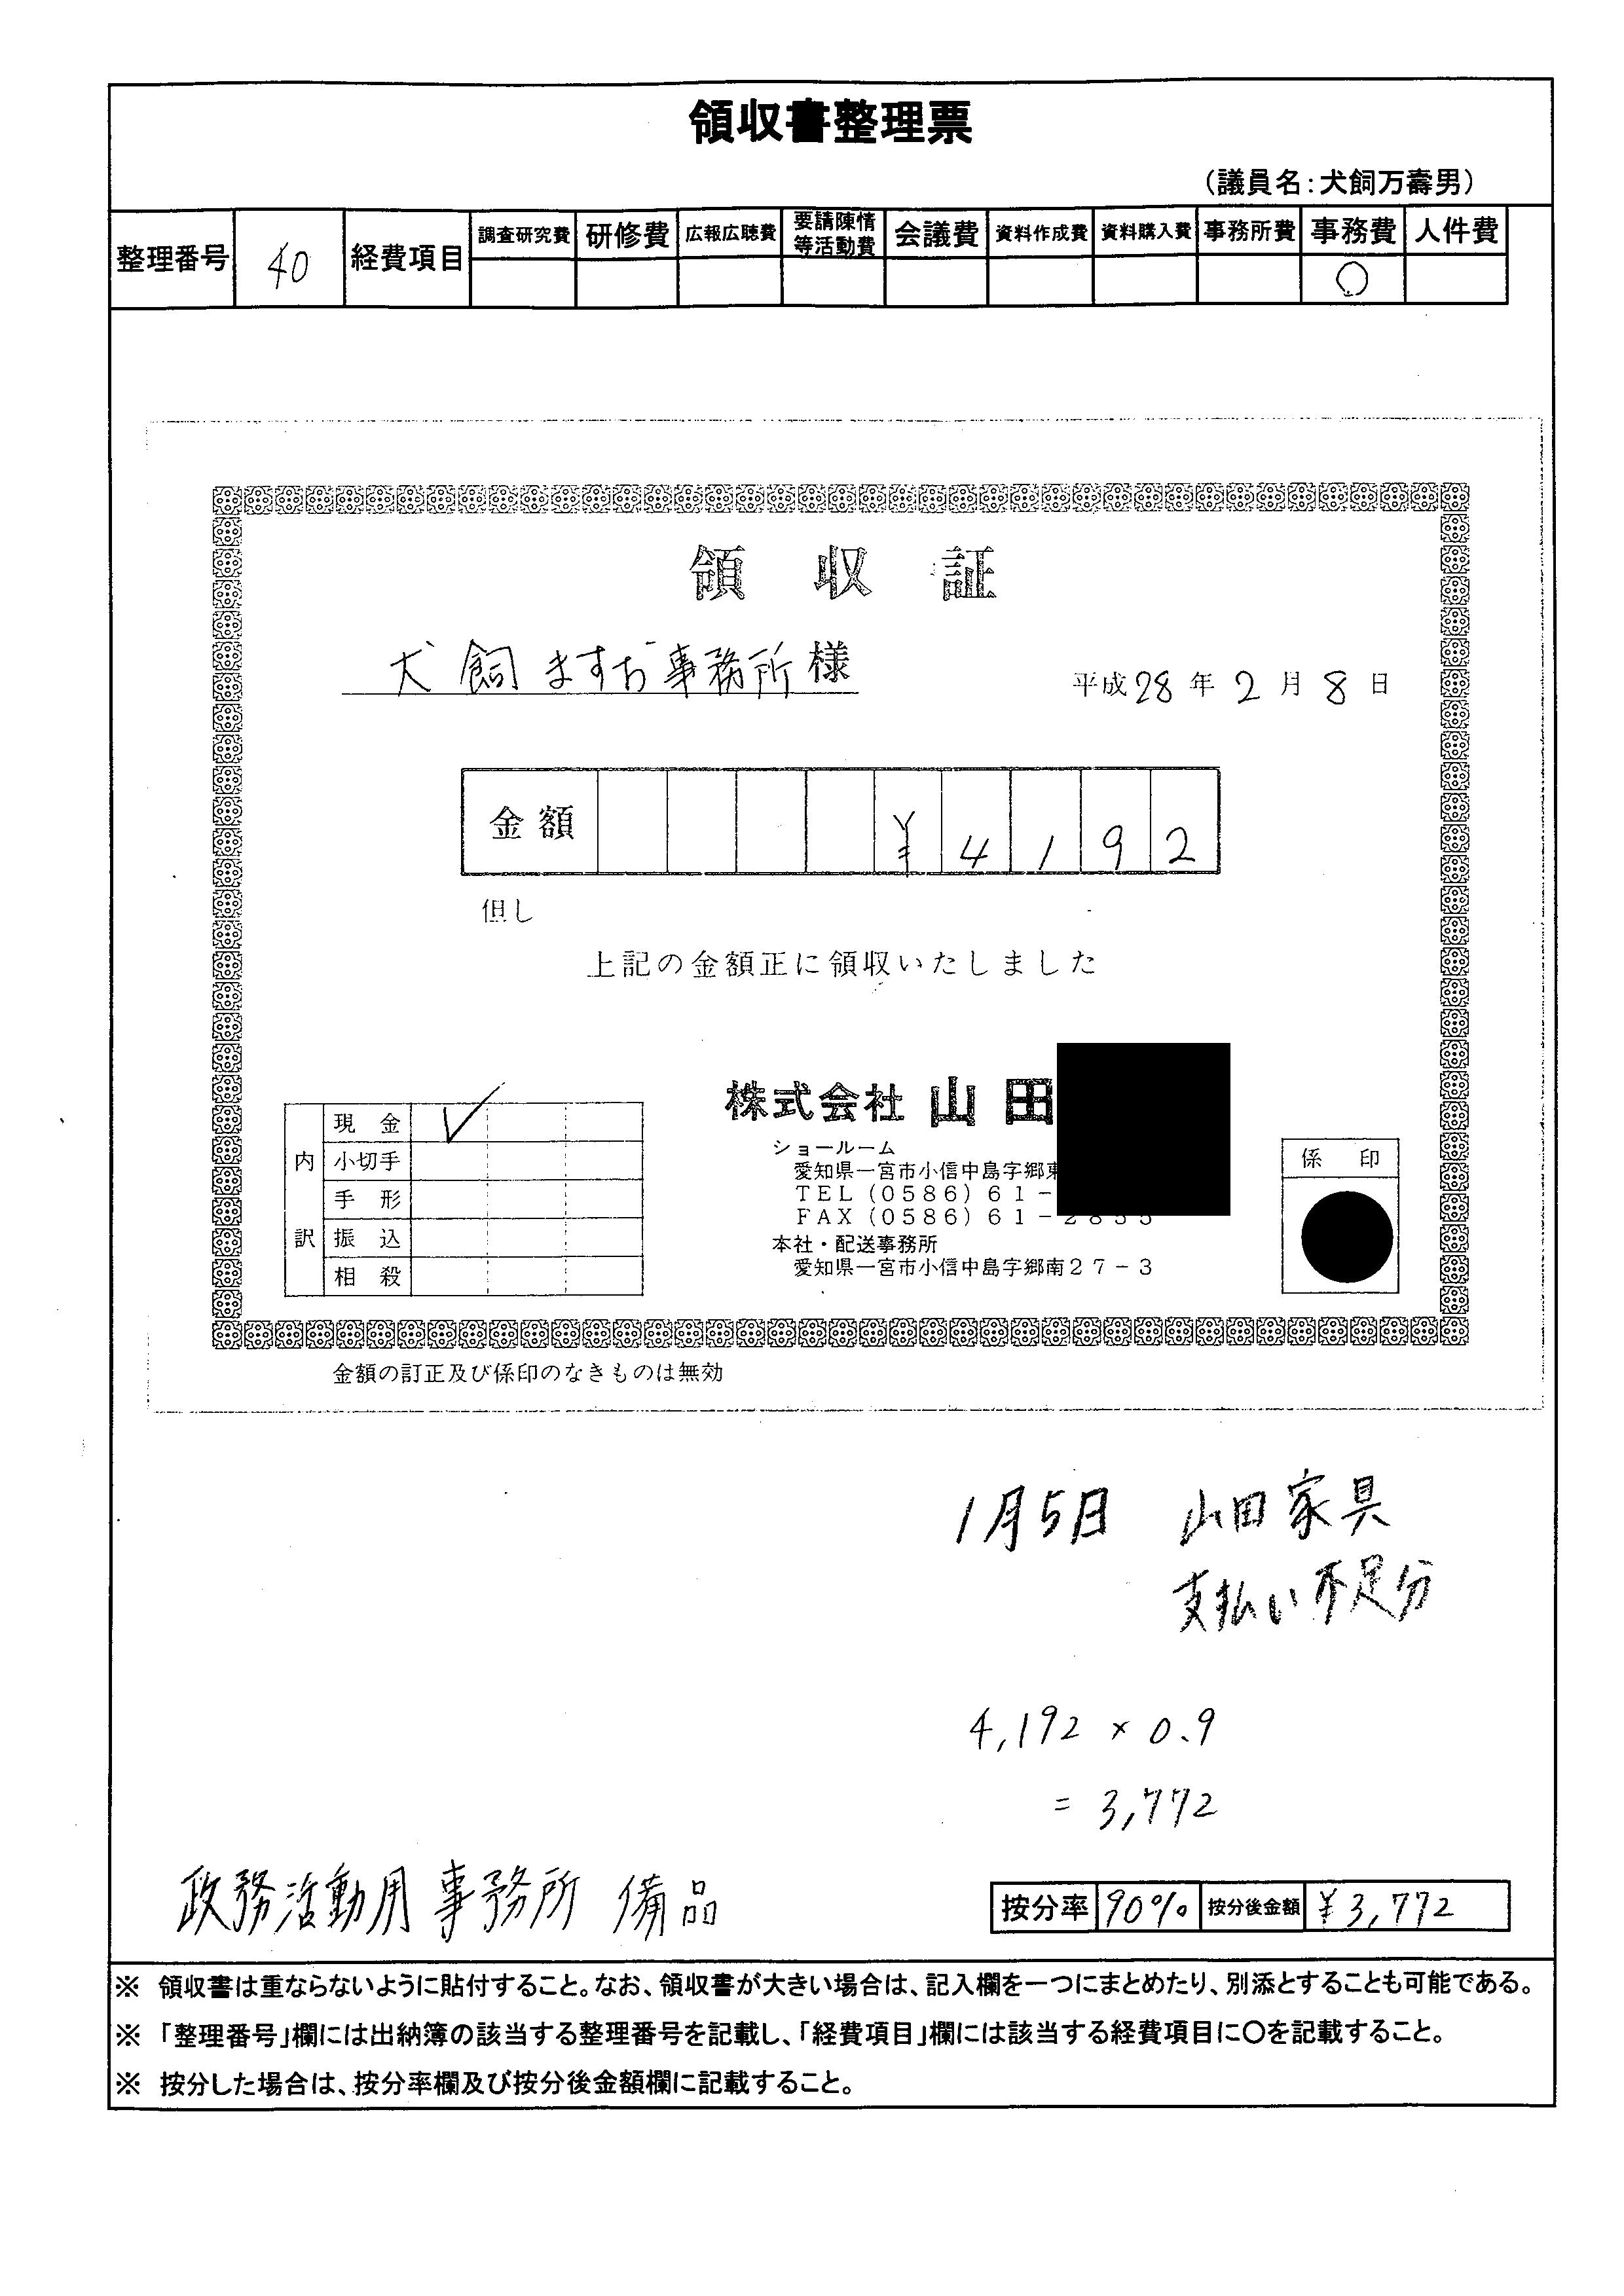 領収書整理票
（議員名：犬飼万壽男）
整理番号 40 経費項目 調査研究費 研修費 広報広聴費 要請陳情等活動費 会議費 資料作成費 資料購入費 事務所費 事務費 人件費
○
領収証
犬飼ますお事務所様
平成28年2月8日
金額 ¥4192
但し
上記の金額正に領収いたしました
内訳
現金 ✓
小切手
手形
振込
相殺
株式会社 山田
ショールーム
愛知県一宮市小信中島字郷東
TEL (0586) 61-
FAX (0586) 61-2855
本社・配送事務所
愛知県一宮市小信中島字郷南27-3
係印
金額の訂正及び係印のなきものは無効
1月5日 山田家具
支払い不足分
4,192 × 0.9
= 3,772
政務活動用事務所 備品
按分率 90% 按分後金額 ¥3,772
※ 領収書は重ならないように貼付すること。なお、領収書が大きい場合は、記入欄を一つにまとめたり、別添とすることも可能である。
※ 「整理番号」欄には出納簿の該当する整理番号を記載し、「経費項目」欄には該当する経費項目に○を記載すること。
※ 按分した場合は、按分率欄及び按分後金額欄に記載すること。